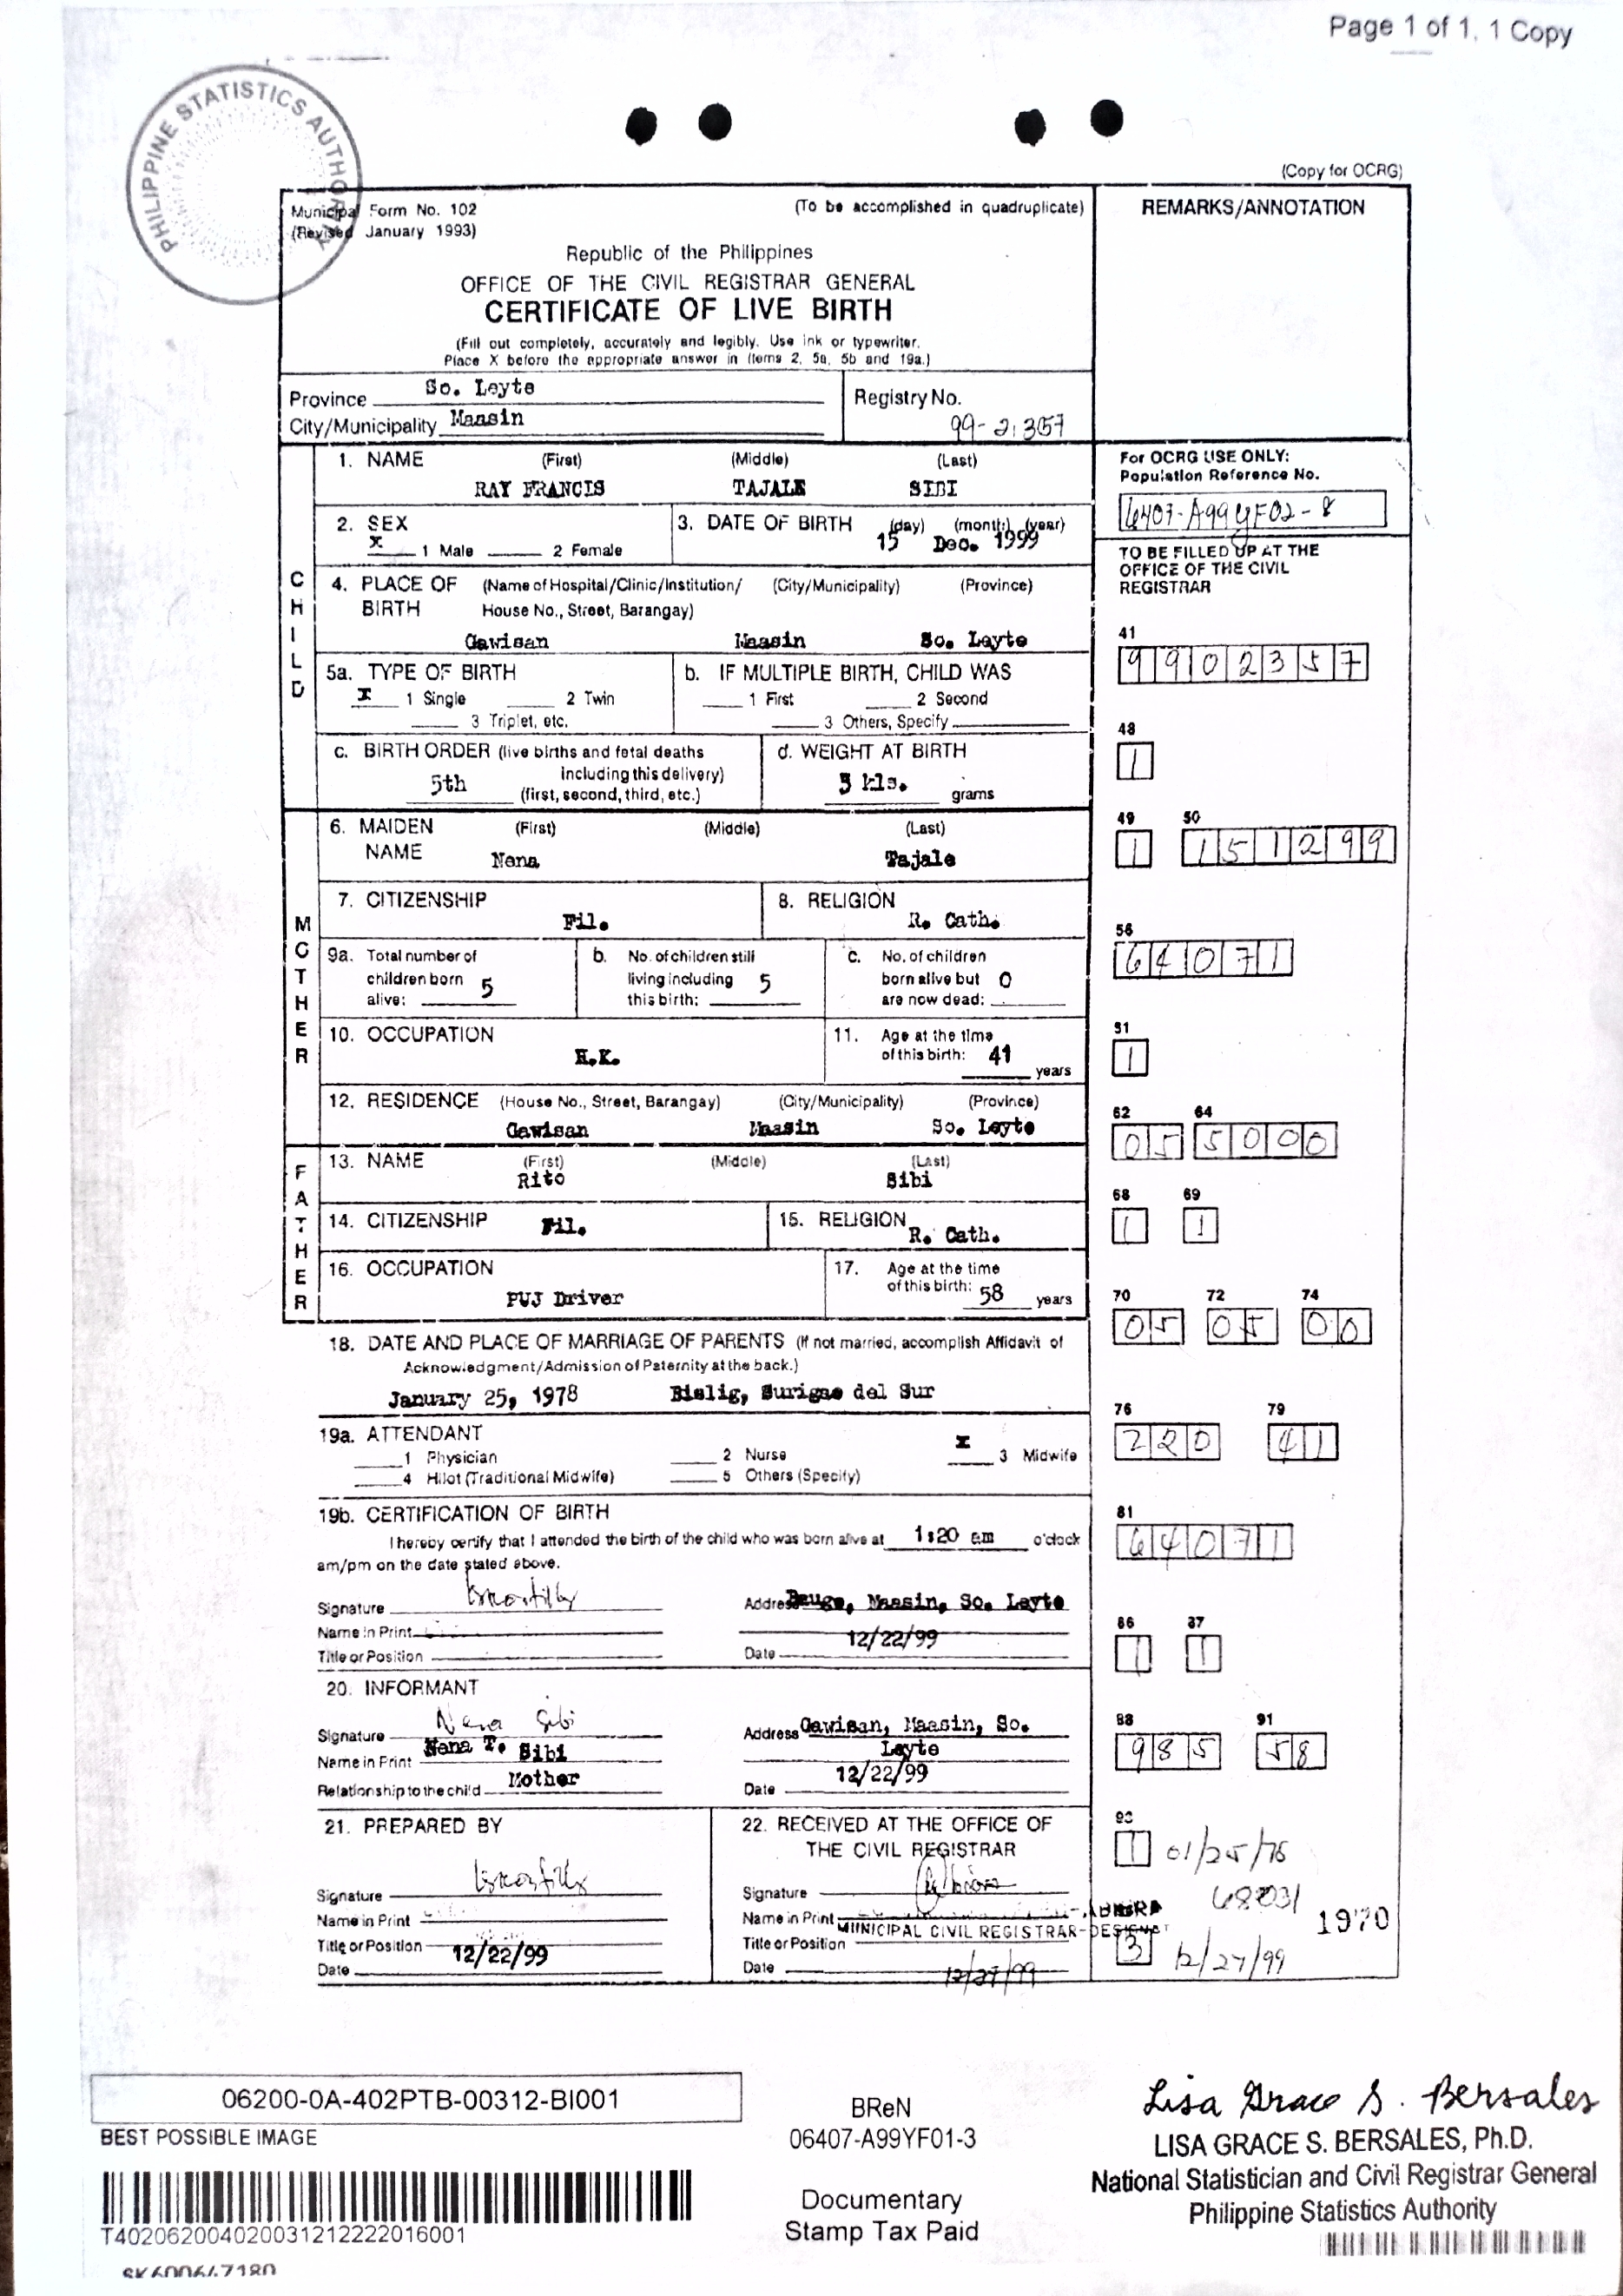 Page 1 of 1, 1 Copy
PHILIPPINE STATISTICS AUTHORITY
(Copy for OCRG)
Municipal Form No. 102
(Revised January 1993)
(To be accomplished in quadruplicate)
Republic of the Philippines
OFFICE OF THE CIVIL REGISTRAR GENERAL
CERTIFICATE OF LIVE BIRTH
(Fill out completely, accurately and legibly. Use ink or typewriter.
Place X before the appropriate answer in Items 2, 5a, 5b and 19a.)
REMARKS/ANNOTATION
Province So. Leyte
City/Municipality Maasin
Registry No.
99-2357
CHILD
1. NAME (First) (Middle) (Last)
RAY FRANCIS TAJALE SIBI
2. SEX
X 1 Male 2 Female
3. DATE OF BIRTH (day) (month) (year)
15 Dec. 1999
4. PLACE OF BIRTH (Name of Hospital/Clinic/Institution/ (City/Municipality) (Province)
House No., Street, Barangay)
Gawisan Maasin So. Leyte
5a. TYPE OF BIRTH
X 1 Single 2 Twin
3 Triplet, etc.
b. IF MULTIPLE BIRTH, CHILD WAS
1 First 2 Second
3 Others, Specify
c. BIRTH ORDER (live births and fetal deaths
including this delivery)
5th (first, second, third, etc.)
d. WEIGHT AT BIRTH
3 kls. grams
MOTHER
6. MAIDEN NAME (First) (Middle) (Last)
Nena Tajale
7. CITIZENSHIP
Fil.
8. RELIGION
R. Cath.
9a. Total number of
children born
alive: 5
b. No. of children still
living including
this birth: 5
c. No. of children
born alive but 0
are now dead:
10. OCCUPATION
H.K.
11. Age at the time
of this birth: 41
years
12. RESIDENCE (House No., Street, Barangay) (City/Municipality) (Province)
Gawisan Maasin So. Leyte
FATHER
13. NAME (First) (Middle) (Last)
Rito Sibi
14. CITIZENSHIP Fil.
15. RELIGION
R. Cath.
16. OCCUPATION
PUJ Driver
17. Age at the time
of this birth: 58 years
18. DATE AND PLACE OF MARRIAGE OF PARENTS (If not married, accomplish Affidavit of
Acknowledgment/Admission of Paternity at the back.)
January 25, 1978 Bislig, Surigao del Sur
19a. ATTENDANT
1 Physician 2 Nurse X 3 Midwife
4 Hilot (Traditional Midwife) 5 Others (Specify)
19b. CERTIFICATION OF BIRTH
I hereby certify that I attended the birth of the child who was born alive at 1:20 am o'clock
am/pm on the date stated above.
Signature
Name in Print
Title or Position
Address Maasin, So. Leyte
12/22/99
Date
20. INFORMANT
Signature Nena Sibi
Name in Print Nena T. Sibi
Relationship to the child Mother
Address Gawisan, Maasin, So.
Leyte
12/22/99
Date
21. PREPARED BY
Signature
Name in Print
Title or Position
Date 12/22/99
22. RECEIVED AT THE OFFICE OF
THE CIVIL REGISTRAR
Signature
Name in Print
MUNICIPAL CIVIL REGISTRAR-DESIGNAT
Title or Position
Date 12/27/99
For OCRG USE ONLY:
Population Reference No.
6407-A99YF02-8
TO BE FILLED UP AT THE
OFFICE OF THE CIVIL
REGISTRAR
41
9902357
48
1
49 50
1 151299
56
64071
51
1
62 64
05 5000
68 69
1 1
70 72 74
05 05 00
76 79
220 41
81
64071
86 87
1 1
88 91
985 58
93
1 01/25/78
68031
1970
3 12/27/99
06200-0A-402PTB-00312-BI001
BEST POSSIBLE IMAGE
T402062004020031212222016001
BReN
06407-A99YF01-3
Documentary
Stamp Tax Paid
Lisa Grace S. Bersales
LISA GRACE S. BERSALES, Ph.D.
National Statistician and Civil Registrar General
Philippine Statistics Authority